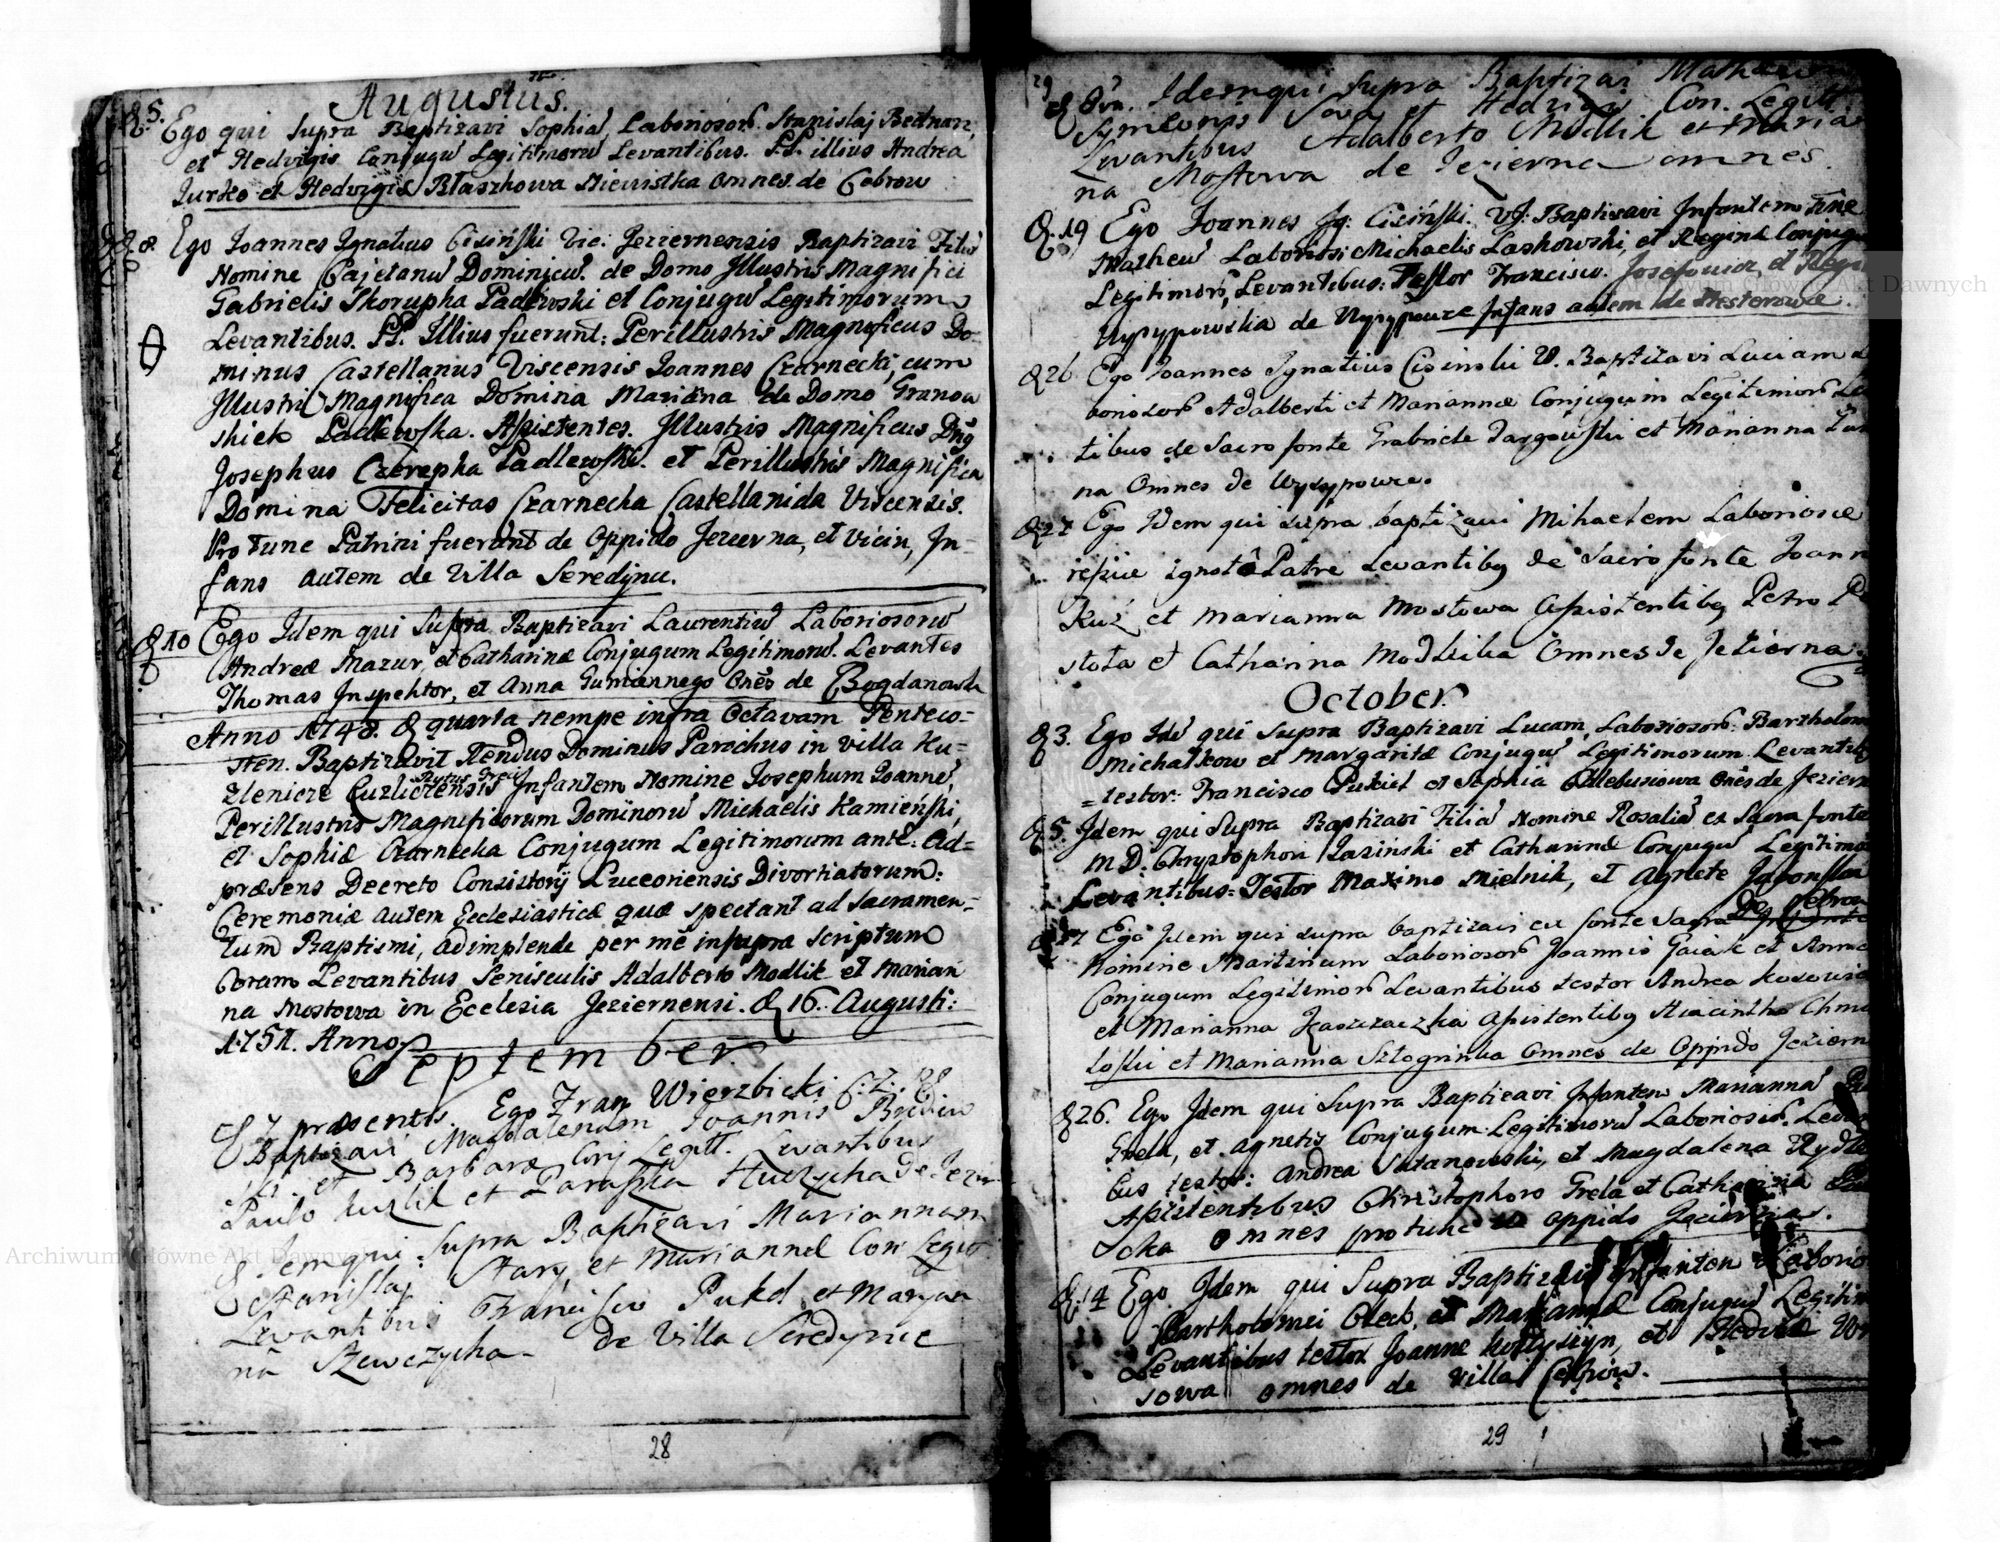 Augustus.
5. Ego qui supra Baptizavi Sophiã, Laboriosorũ. Stanislaj Bednarz,
et Hedvigis Conjugũ Legitimorũ Levantibus. P.P. illius Andrea
Jurko et Hedvigis Błaszkowa Niewistka omnes de Cebrow
8. Ego Joannes Ignatius Cisiński Vic: Jeziernensis Baptizavi Filiũ
Nomine Cajetanũ Dominicũ. de Domo Illustris Magnifici
Gabrielis Skorupka Padlewski et Conjugũ Legitimorum
Levantibus. PP. Illius fuerunt: Perillustris Magnificus Do-
minus Castellanus Viscensis Joannes Czarnecki, cum
Illustri Magnifica Domina Mariana de Domo Granow
skich Padlewska. Assistentes. Illustris Magnificus Dñs
Josephus Czerepka Padlewski. et Perillustris Magnifica
Domina Felicitas Czarnecka Castellanida Viscensis.
Pro Tunc Patrini fuerunt de Oppido Jezierna, et Vicin, In-
fans autem de Villa Seredyncu.
10 Ego Idem qui Supra Baptizavi Laurentiũ Laboriosorũ
Andreæ Mazur, et Catharinæ Conjugum Legitimorũ. Levantes
Thomas Inspektor, et Anna Gumiennego Onẽs de Bogdanowka
Anno 1748. quarta nempe infra Octavam Penteco-
sten. Baptizavit Rendus Dominus Parochus in Villa Ku-
Ritus Græci
zlenicze Cuzlicensis Infantem Nomine Josephum Joannẽ,
Perillustris Magnificorum Dominorũ Michaelis Kamieński,
et Sophiæ Czarnecka Conjugum Legitimorum ante. ad-
præsens Decreto Consistorij Luceoriensis Divortiatorum:
Ceremoniæ autem Ecclesiasticæ quæ spectant ad Sacramen-
tum Baptismi, adimplendæ per mẽ infra scriptum
Coram Levantibus Senisculis Adalberto Modlik et Marian
na Mostowa in Ecclesia Jeziernensi. 16. Augusti:
1751. Anno
September
7 præsentis Ego Fran Wierzbicki
Baptizavi Magdalenam Joannis
et Barbaræ Conj Legitt. Levantibus
Paulo Kuzlik et Paraszka Huczycha de Jezier
Idemqui Supra Baptizavi Mariannam
Stanislaj Stary, et Mariannæ Con: Legitt
Levantibus Francisco Pukel et Maryan
na Szewczycha de Villa Seredynce
28
29
8va. Idemqui Supra Baptizavi Mathæum
Symeonis Sova et Hedvigæ Con. Legitt.
Levantibus Adalberto Modlik et Maria
na Mostowa de Jezierna omnes
19 Ego Joannes Ig: Cisiński. VJ: Baptizavi Infantem
Matheũ Laboriosi Michaelis Laskowski, et Reginæ Conjug
Legitimorũ, Levantibus: Testor Francisco. et Regi
Wysypowska de Wysypowce Infans autem de Nesterowce.
26 Ego Joannes Ignatius Cisinski V. Baptizavi Luciam
boriosorũ Adalberti et Mariannæ Conjugum Legitimorũ Le
tibus de Sacro fonte Grabriele Dargowski et Marianna
na Omnes de Wysypowce.
27 Ego Idem qui supra baptizavi Mihaelem Laboriosæ
ignotô Patre Levantibg de Sacro fonte Joann
Kuź et Marianna Mostowa Assistentibg Petro
stota et Catharina Modlika Omnes de Jezierna
October
3. Ego Idẽ qui Supra Baptizavi Lucam, Laboriosorũ. Bartholom
Michałkow et Margaritæ Conjugũ Legitimorum. Levantib
=testor: Francisco Pukiel et Sophia Chlebunowa onẽs de Jeziern
5. Idem qui Supra Baptizavi Filiã Nomine Rosaliã ex Sacra fonte
M.D: Chrystophori Lazinski et Catharinæ Conjugũ Legitimo
Levantibus: Testor Maximo Mielnik, et Agnete
17 Ego Idem qui supra baptizavi ex fonte Sacra
Nomine Martinum Laboriosorũ Joannis Gaiak et Annæ
Conjugum Legitimorũ Levantibus testor Andrea
et Marianna Assistentibg Hiacintho Chmi
et Marianna Omnes de Oppido Jeziern
26. Ego Idem qui Supra Baptizavi Infantem Mariannã
Grela, et Agnetis Conjugum Legitimorũ Laboriosorũ. Levan
bus testor: Andrea Satanowski, et Magdalena
Assistentibus Christophoro Grela et Catharina
cka omnes protunc Oppido Jezierna.
14 Ego Idem qui Supra Baptizavi Infantem Laborio
Bartholomei Oleck, et Mariannæ Conjugũ Legitim
Levantibus testor Joanne Kostyszyn, et
sowa omnes de Villa Cebrow.
29
Archiwum Główne Akt Dawnych
Archiwum Główne Akt Dawnych